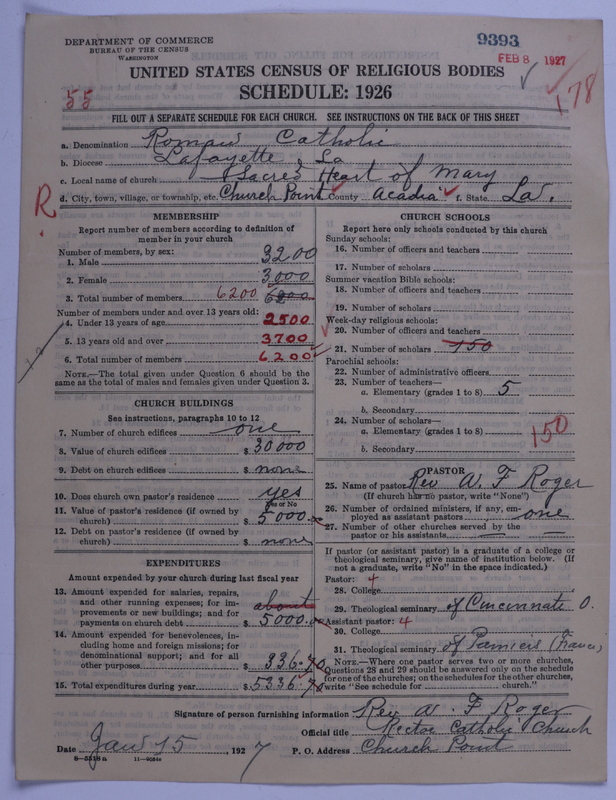 DEPARTMENT OF COMMERCE
BUREAU OF THE CENSUS
WASHINGTON
9393
FEB 8 1927
UNITED STATES CENSUS OF RELIGIOUS BODIES
SCHEDULE: 1926
55
178
FILL OUT A SEPARATE SCHEDULE FOR EACH CHURCH. SEE INSTRUCTIONS ON THE BACK OF THIS SHEET
a. Denomination Roman Catholic
b. Diocese Lafayette, La
c. Local name of church Sacred Heart of Mary
d. City, town, village, or township, etc. Church Point County Acadia f. State La.
R
MEMBERSHIP
Report number of members according to definition of member in your church
Number of members, by sex:
1. Male 3200
2. Female 3000
3. Total number of members 6200 6200
Number of members under and over 13 years old:
4. Under 13 years of age 2500
5. 13 years old and over 3700
6. Total number of members 6200
NOTE.—The total given under Question 6 should be the same as the total of males and females given under Question 3.
CHURCH BUILDINGS
See instructions, paragraphs 10 to 12
7. Number of church edifices one
8. Value of church edifices $ 30000
9. Debt on church edifices $ none
10. Does church own pastor's residence yes
Yes or No
11. Value of pastor's residence (if owned by church) $ 5000
12. Debt on pastor's residence (if owned by church) $ none
EXPENDITURES
Amount expended by your church during last fiscal year
13. Amount expended for salaries, repairs, and other running expenses; for improvements or new buildings; and for payments on church debt about $ 5000.00
14. Amount expended for benevolences, including home and foreign missions; for denominational support; and for all other purposes $ 336.70
15. Total expenditures during year $ 5336.70
CHURCH SCHOOLS
Report here only schools conducted by this church
Sunday schools:
16. Number of officers and teachers
17. Number of scholars
Summer vacation Bible schools:
18. Number of officers and teachers
19. Number of scholars
Week-day religious schools:
20. Number of officers and teachers
21. Number of scholars 150
Parochial schools:
22. Number of administrative officers
23. Number of teachers—
a. Elementary (grades 1 to 8) 5
b. Secondary
24. Number of scholars—
a. Elementary (grades 1 to 8) 150
b. Secondary
PASTOR
25. Name of pastor Rev W. F Roger
(If church has no pastor, write "None")
26. Number of ordained ministers, if any, employed as assistant pastors one
27. Number of other churches served by the pastor or his assistants
If pastor (or assistant pastor) is a graduate of a college or theological seminary, give name of institution below. (If not a graduate, write "No" in the space indicated.)
Pastor: 4
28. College
29. Theological seminary of Cincinnati O.
Assistant pastor: 4
30. College
31. Theological seminary of Pamiers (France)
NOTE.—Where one pastor serves two or more churches, Questions 28 and 29 should be answered only on the schedule for one of the churches; on the schedules for the other churches, write "See schedule for church."
Signature of person furnishing information Rev W. F Roger
Official title Rector Catholic Church
Date Jan 15, 1927 P. O. Address Church Point